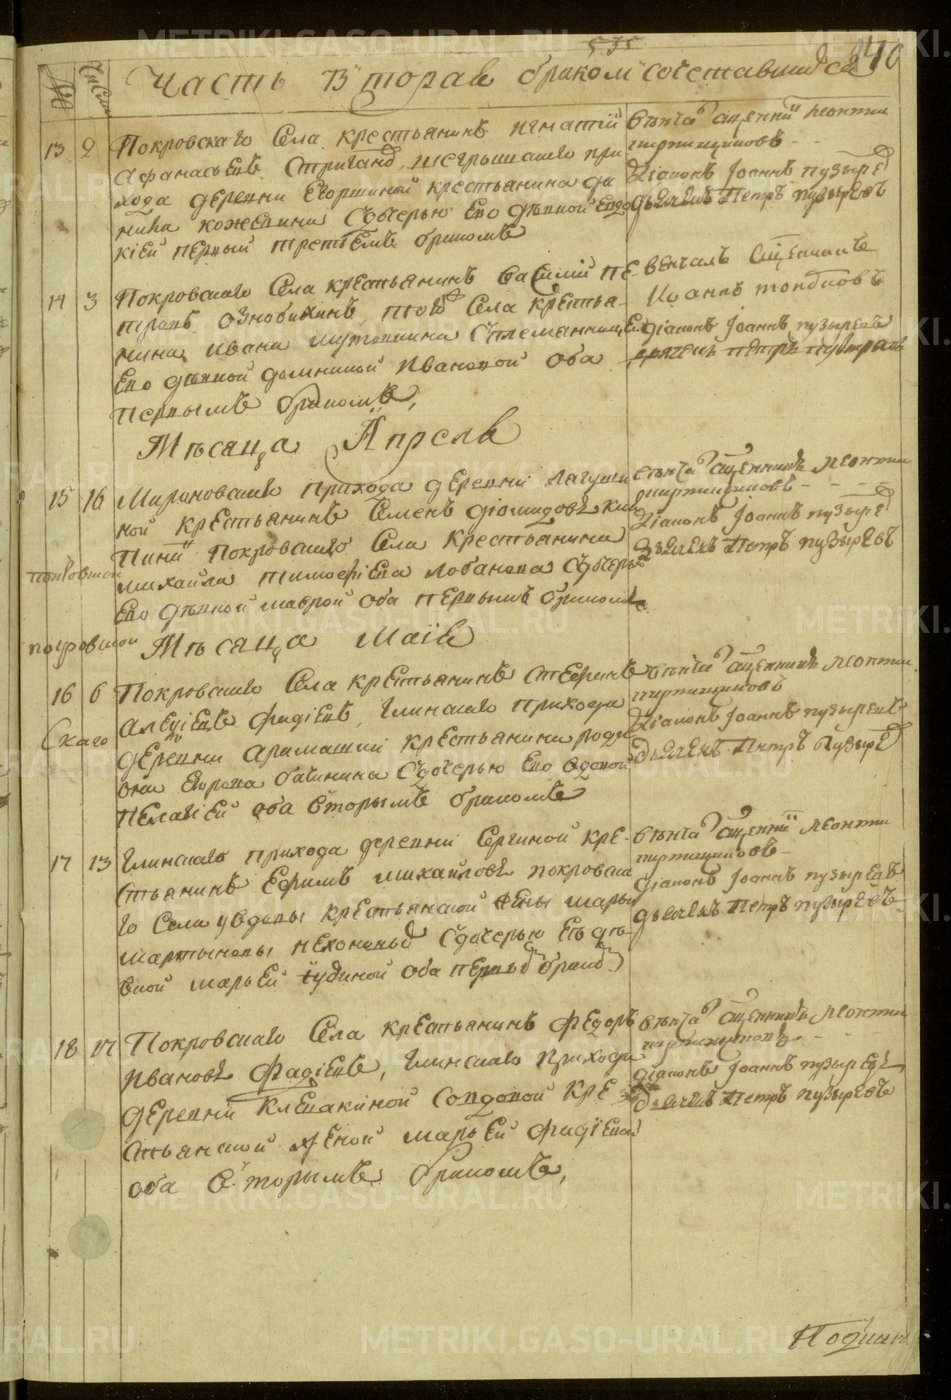 535
410
Часть Вторая браком сочетавшихся
13 2 Покровскаго Села крестьянинъ Игнатій
Афанасьевъ Стриганъ, при
хода деревни крестьянина да
нила кожевина Сдочерью Его дѣвкой Евдо
кіей первый третьемъ бракомъ
вѣнча Священникъ Леонтий
Діаконъ Іоаннъ пузыре
дьячекъ Петръ пузыревъ
14 3 Покровскаго Села крестьянинъ Василий пе
тровъ Ознобихинъ, тово Села крестья
нина Ивана Сплеменницей
Его дѣвкой домникой Ивановой оба
первымъ бракомъ,
Венчалъ Священникъ
Иоаннъ
діаконъ Іоаннъ пузыревъ
дьячекъ петръ пузыревъ
Мѣсяца Апреля
15 16 Мироновскаго прихода деревни Лягуши
ной крестьянинъ Семенъ діомидовъ
Покровскаго Села крестьянина
михайла тимофіева лобанова Сдочерью
Его дѣвкой маврой оба первымъ бракомъ
вѣнча Священникъ Леонтий
Діаконъ Іоаннъ пузыре
Дьячекъ Петръ пузыревъ
покровскои
покровскои
Мѣсяца Маія
16 6 Покровскаго Села крестьянинъ Стефанъ
Алеѯіевъ фадіевъ, Глинскаго прихода
деревни арамашки крестьянина роди
она Егорова бачинина Сдочерью Его вдовой
пелагіей оба вторымъ бракомъ
вѣнча Священникъ Леонтий
Діаконъ Іоаннъ пузыревъ
Дьячекъ Петръ Пузыре
Скаго
17 13 Глинскаго прихода деревни Сергиной кре
стьянинъ Ефимъ михайловъ покровска
го Села увдовы крестьянской жены марьи
мартыновы Сдочерью Еѣ дѣ
вкой марьей іудиной оба первы брако
вѣнча Священникъ Леонтий
діаконъ Іоаннъ пузыревъ
дьячекъ Петръ пузыревъ
18 17 Покровскаго Села крестьянинъ Федоръ
Ивановъ фадіевъ, Глинскаго прихода
деревни Клевакиной Совдовой кре
стьянской женой марьей фадіевой
оба вторымъ бракомъ,
вѣнча Священникъ Леонтий
діаконъ Іоаннъ пузыревъ
дьячекъ Петръ пузыревъ
METRIKI.GASO-URAL.RU